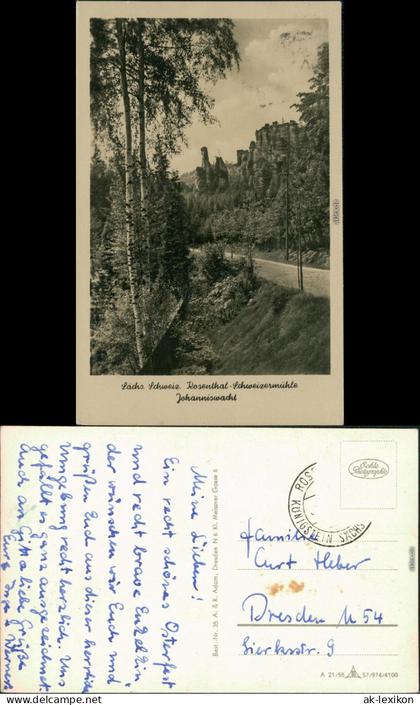 Sächs. Schweiz. Rosenthal-Schweizermühle
Johanniswacht
Meine Lieben!
Ein recht schönes Osterfest
und recht brave
der wünschen wir Euch und
grüßen Euch aus dieser
Umgebung recht herzlich. Uns
gefällt es ganz ausgezeichnet.
Auch an liebe Grüße
Eure
Best.-Nr. 35 A. & R. Adam, Dresden N 6 Kl. Meissner Gasse 6
Echte Photographie
KÖNIGSTEIN SÄCHS
Familie
Curt Heber
Dresden N 54
9
A 21/56 57/974/4100
www.ak-lexikon.com
ak-lexikon